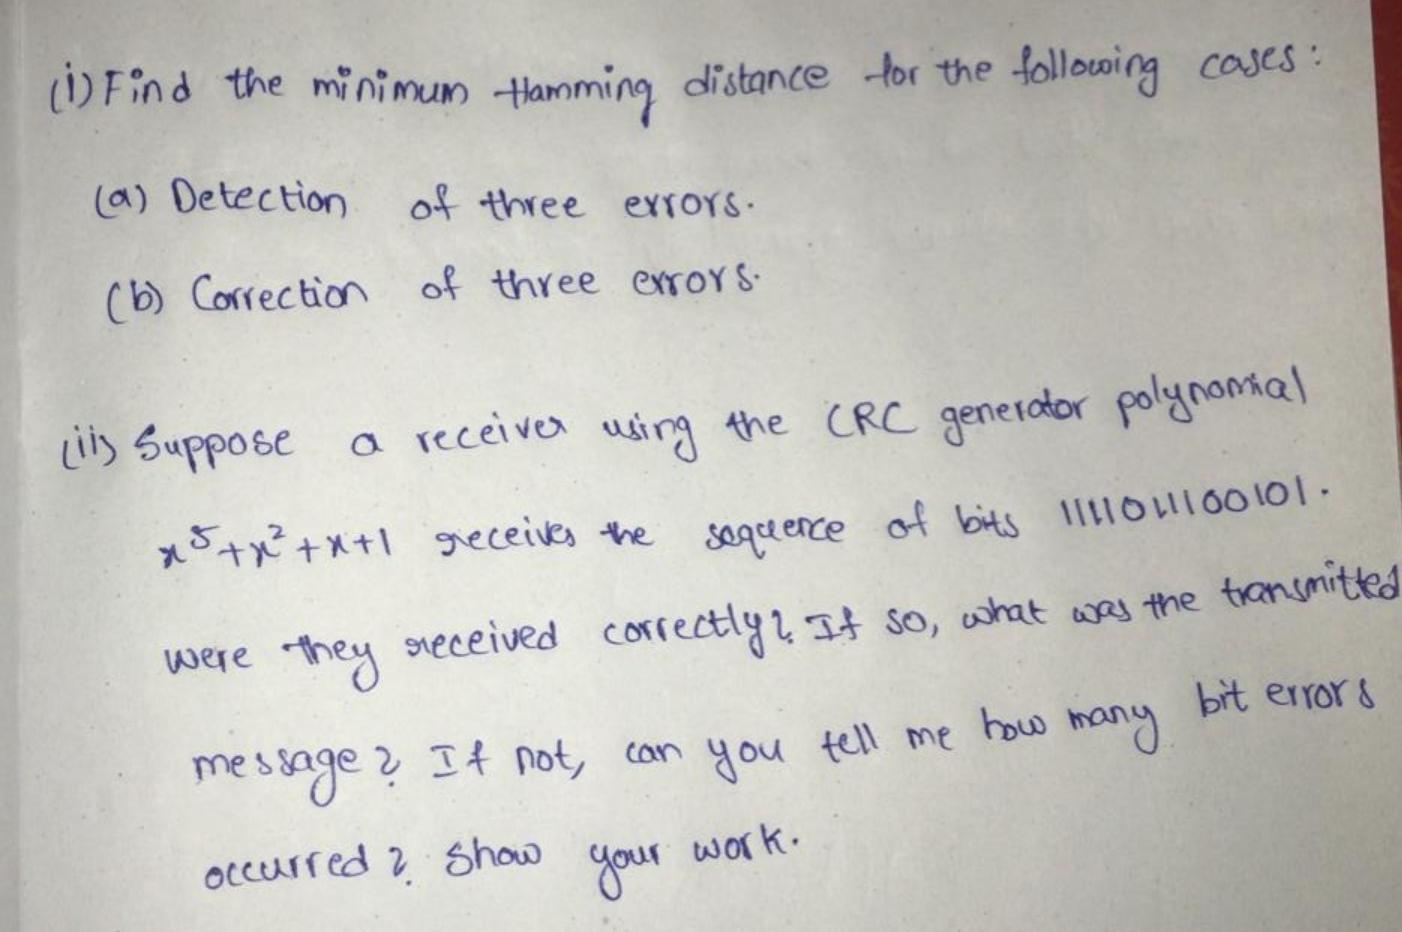 (i) Find the minimum Hamming distance for the following cases:
(a) Detection of three errors.
(b) Correction of three errors.
(ii) Suppose a receiver using the CRC generator polynomial
x⁵+x²+x+1 receives the sequence of bits 1111011100101.
were they received correctly? If so, what was the transmitted
message? If not, can you tell me how many bit errors
occurred? Show your work.